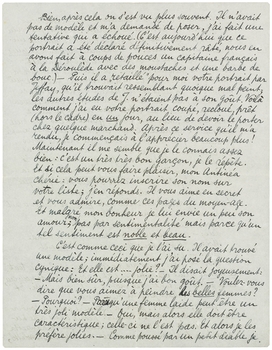 Bien, après cela on s'est vu plus souvent. Il n'avait
pas de modèle et m'a demandé de poser. J'ai fait une
tentative qui a échoué. (C'est aujourd'hui que ce
portrait a été déclaré définitivement raté, nous en
avons fait à coups de pouces un capitaine français
à la Déroulède avec des moustaches et une barbe de
bouc) — Puis il a retaillé pour moi votre portrait par
, qu'il trouvait ressemblant quoique mal peint,
les autres études de J. n'étaient pas à son goût. Voilà
comment j'ai eu votre portrait coupé, recloué, prêt
(hors le cadre) en un jour, au lieu de devoir le porter
chez quelque marchand. Après ce service qu'il m'a
rendu, je commençais à l'apprécier beaucoup plus!
Maintenant il me semble que je le connais assez
bien: c'est un très très bon garçon, je le répète.
Et si cela peut vous faire plaisir, mon Antinéa
chérie: vous pourrez inscrire son nom sur
votre liste; j'en réponds. Il vous aime en secret
et vous admire, comme ces pages du moyen-âge.
Et malgré mon bonheur je lui envie un peu son
amour: pas par sentimentalité mais parce qu'un
tel sentiment est noble et beau.
C'est comme ceci que je l'ai su. Il avait trouvé
une modèle; immédiatement j'ai posé la question
cynique: Et elle est .... jolie? — Il disait joyeusement:
— Mais bien sûr, puisque j'ai bon goût. — Voulez-vous
dire que vous aimez à peindre les belles femmes?
— Pourquoi? — Parce qu'une femme laide peut être un
très joli modèle. — Oui, mais alors elle doit être
caractéristique; celle-ci ne l'est pas. Et alors je les
préfère jolies. — Comme poussé par un petit diable, je